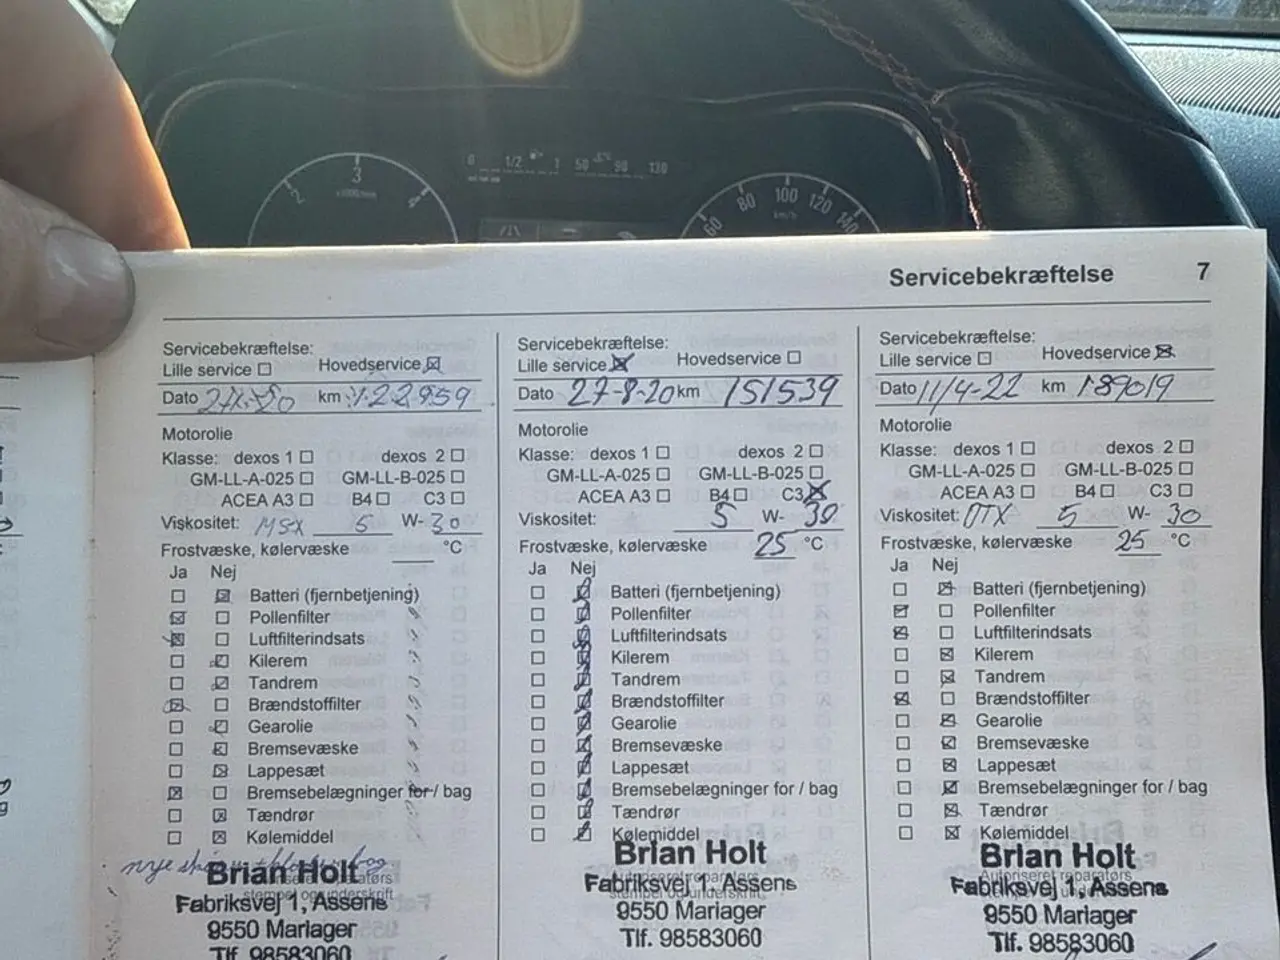 0 1/2 1 50 90 130
2 3 4
60 80 100 120 140
km/h
Servicebekræftelse 7
Servicebekræftelse:
Lille service Hovedservice
Dato km 122959
Motorolie
Klasse: dexos 1 dexos 2
GM-LL-A-025 GM-LL-B-025
ACEA A3 B4 C3
Viskositet: 5 W- 30
Frostvæske, kølervæske °C
Ja Nej
Batteri (fjernbetjening)
Pollenfilter
Luftfilterindsats
Kilerem
Tandrem
Brændstoffilter
Gearolie
Bremsevæske
Lappesæt
Bremsebelægninger for / bag
Tændrør
Kølemiddel
nye
Brian Holt
stempel og underskrift
Fabriksvej 1, Assens
9550 Mariager
Tlf. 98583060
Servicebekræftelse:
Lille service Hovedservice
Dato 27-8-20 km 151539
Motorolie
Klasse: dexos 1 dexos 2
GM-LL-A-025 GM-LL-B-025
ACEA A3 B4 C3
Viskositet: 5 W- 30
Frostvæske, kølervæske 25 °C
Ja Nej
Batteri (fjernbetjening)
Pollenfilter
Luftfilterindsats
Kilerem
Tandrem
Brændstoffilter
Gearolie
Bremsevæske
Lappesæt
Bremsebelægninger for / bag
Tændrør
Kølemiddel
Brian Holt
Autoriseret reparatørs
Fabriksvej 1, Assens
stempel og underskrift
9550 Mariager
Tlf. 98583060
Servicebekræftelse:
Lille service Hovedservice
Dato 11/4-22 km 189019
Motorolie
Klasse: dexos 1 dexos 2
GM-LL-A-025 GM-LL-B-025
ACEA A3 B4 C3
Viskositet: 5 W- 30
Frostvæske, kølervæske 25 °C
Ja Nej
Batteri (fjernbetjening)
Pollenfilter
Luftfilterindsats
Kilerem
Tandrem
Brændstoffilter
Gearolie
Bremsevæske
Lappesæt
Bremsebelægninger for / bag
Tændrør
Kølemiddel
Brian Holt
Autoriseret reparatørs
Fabriksvej 1, Assens
9550 Mariager
Tlf. 98583060